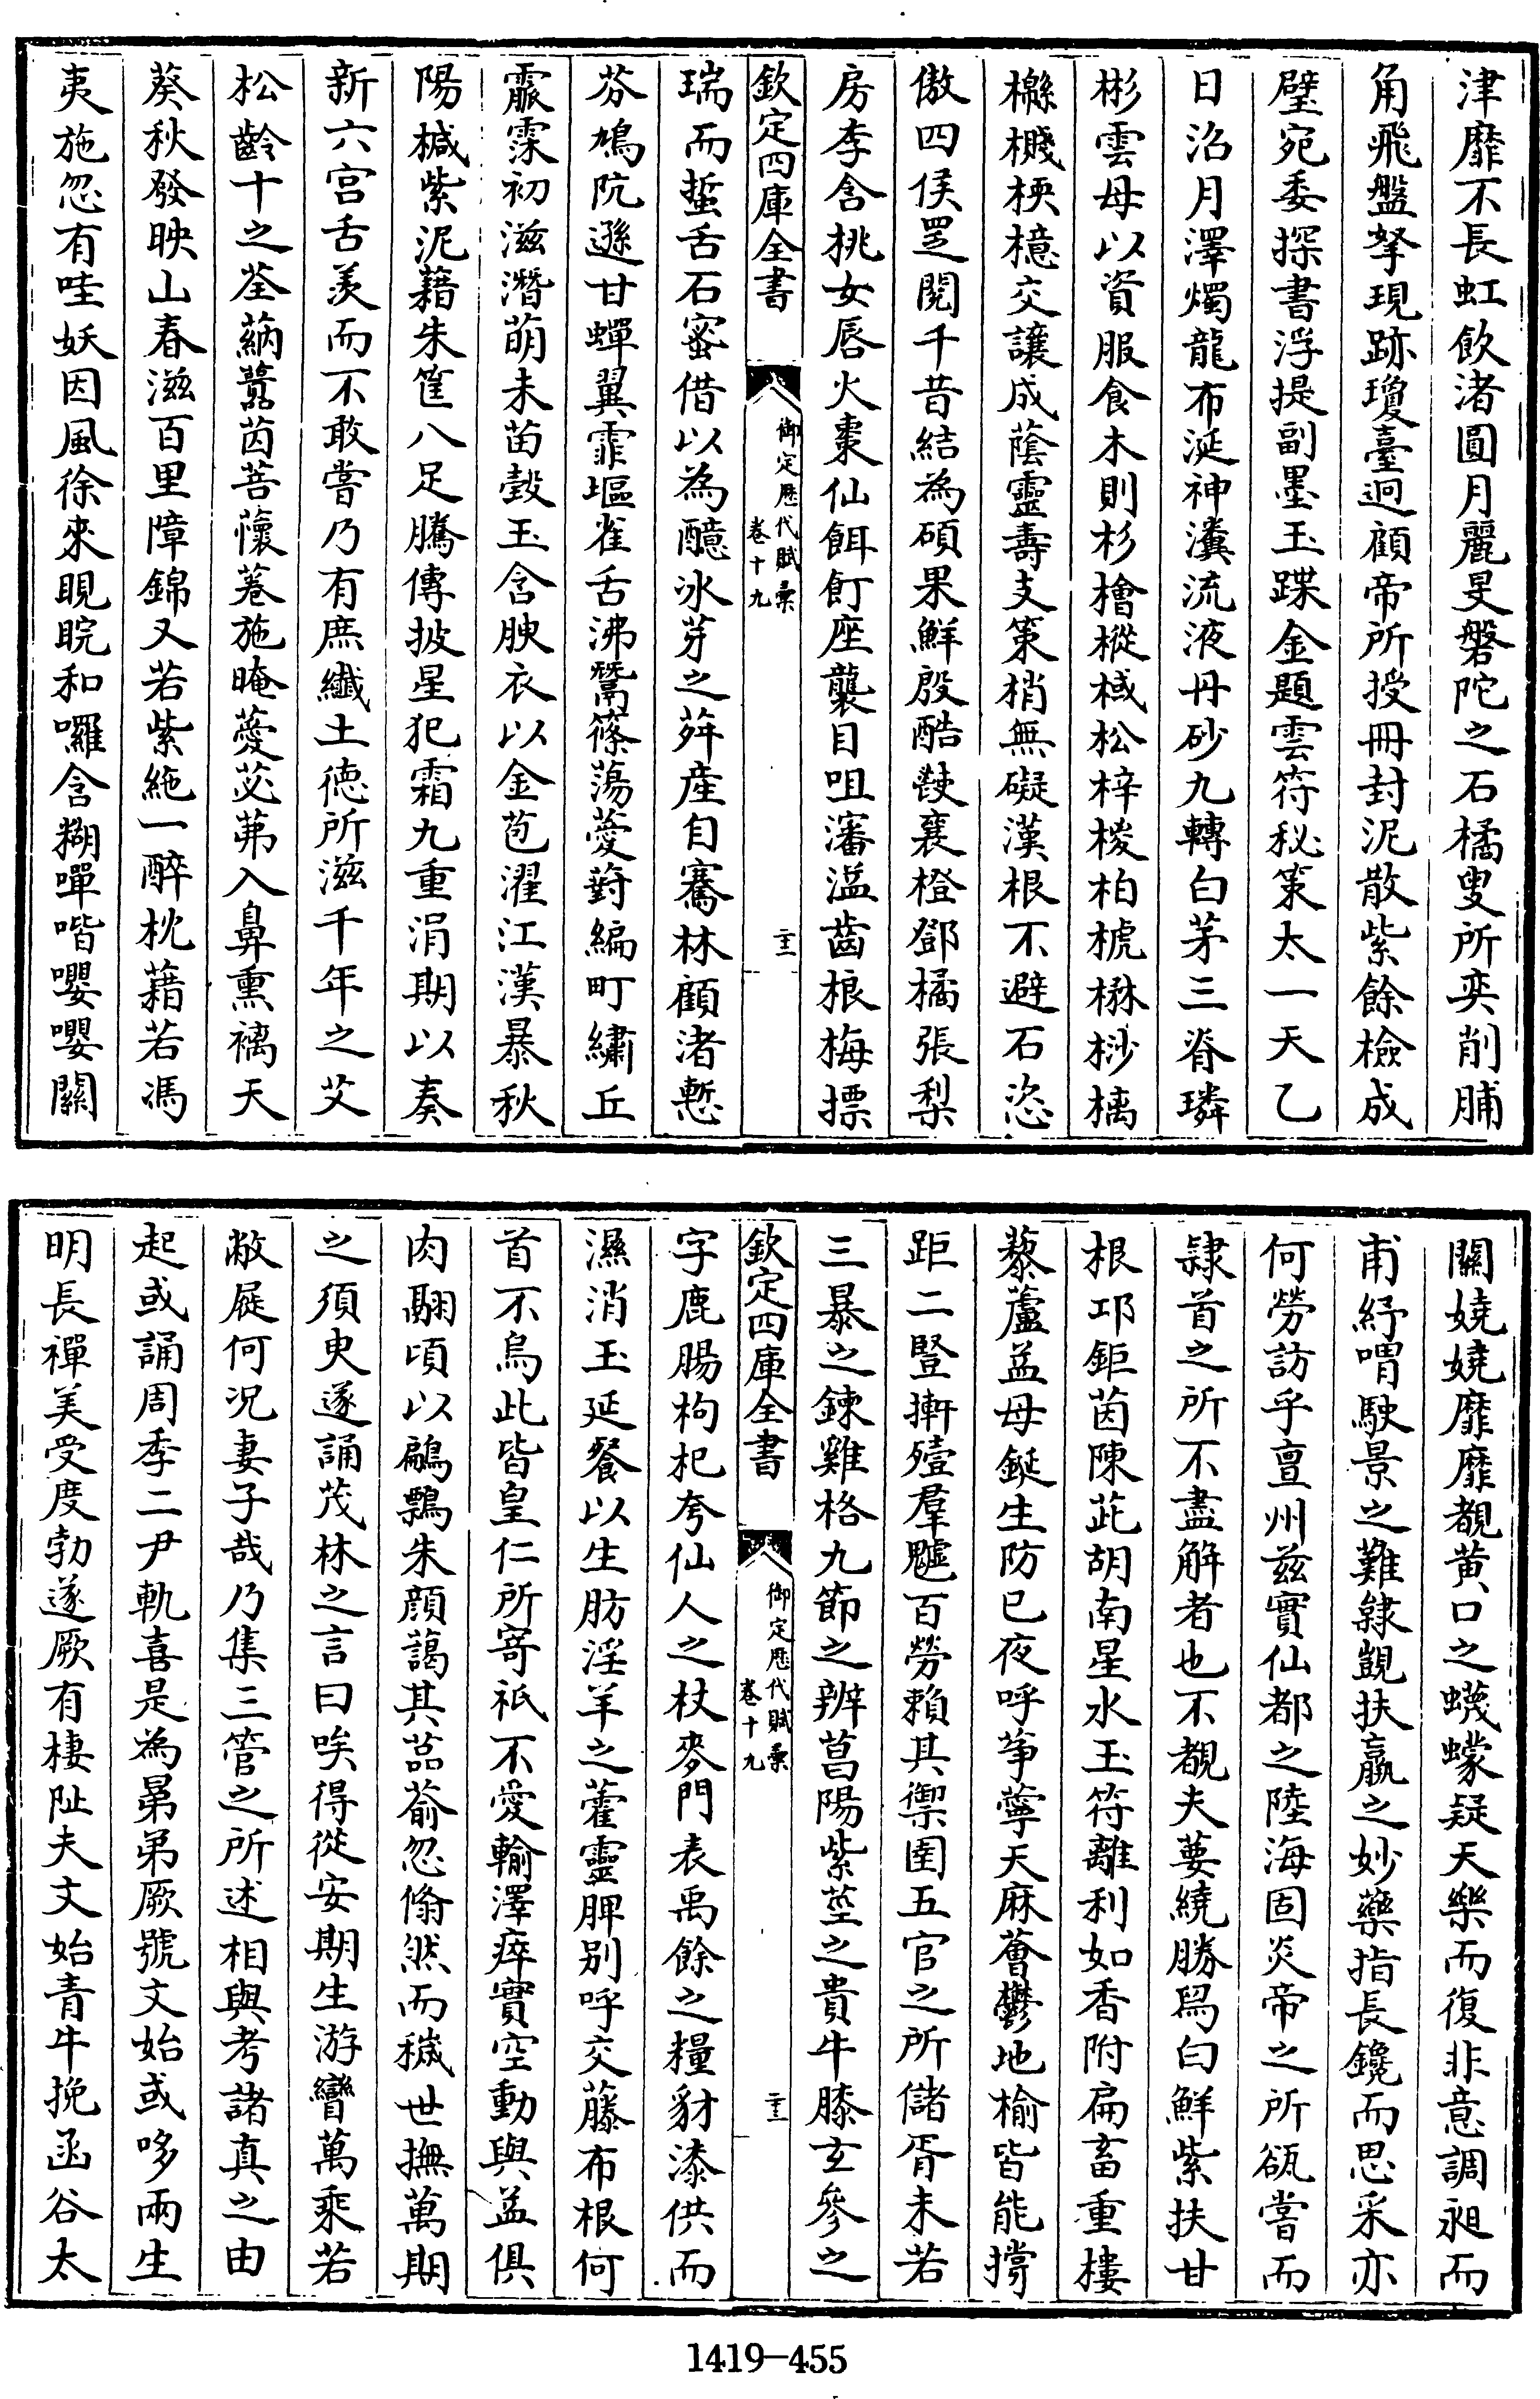 津靡不長虹飲渚圓月麗旻磐陀之石橘叟所奕削脯
角飛盤拏現跡瓊臺迥顧帝所授冊封泥散紫餘檢成
璧宛委探書浮提副墨玉蹀金題雲符秘策太一天乙
日沿月澤燭龍布涎神瀵流液丹砂九轉白茅三脊璘
彬雲母以資服食木則杉檜樅棫松梓椶柏榹楙桫樆
櫾櫗楩檍交讓成蔭靈壽支策梢無礙漢根不避石恣
傲四侯罡閱千昔結為碩果鮮殷酷䜴襄橙鄧橘張梨
房李含桃女唇火棗仙餌飣座襲目咀瀋溢齒根梅摽
欽定四庫全書
御定歷代賦彙
卷十九
二十二
瑞而蜇舌石蜜借以為醷冰芽之荈產自騫林顧渚慙
芬鳩阬遜甘蟬翼霏塸雀舌沸鬵篠蕩薆葑編町繡丘
霢霂初滋潛萌未苗瑴玉含腴衣以金苞濯江漢暴秋
陽椷紫泥藉朱筐八足騰傳披星犯霜九重涓期以奏
新六宮舌羨而不敢嘗乃有庶纖土德所滋千年之艾
松齡十之荃蒳蘻茵菩懷菤施晻薆苾茀入鼻熏褵天
葵秋發映山春滋百里障錦又若紫絁一醉枕藉若馮
夷施忽有哇妖因風徐來睍睆和囉含糊嘽喈嚶嚶關
關嬈嬈靡靡覩黃口之蠛蠓疑天樂而復非意調昶而
甫紓喟駛景之難隸覬扶羸之妙藥指長鑱而思采亦
何勞訪乎亶州兹實仙都之陸海固炎帝之所㼐嘗而
隸首之所不盡解者也不覩夫葽繞勝舄白鮮紫扶甘
根邛鉅茵陳茈胡南星水玉符離利如香附扁畜重樓
藜蘆益母鋋生防已夜呼葶薴天麻薈鬱地榆皆能撐
距二豎摲殪羣魖百勞賴其禦圉五官之所儲胥未若
三暴之鍊雞格九節之辨菖陽紫莖之貴牛膝玄參之
欽定四庫全書
御定歷代賦彙
卷十九
二十三
字鹿腸枸杞夸仙人之杖麥門表禹餘之糧豺漆供而
濕消玉延餐以生肪淫羊之藿靈脾別呼交藤布根何
首不烏此皆皇仁所寄祇不愛輸澤瘁實空動與益俱
肉翮頃以鸓鷅朱顏藹其萏蕍忽翛然而穢世撫萬期
之須臾遂誦茂林之言曰唉得從安期生游彎萬乘若
敝屣何况妻子哉乃集三管之所述相與考諸真之由
起或誦周季二尹軌喜是為㬎弟厥號文始或哆兩生
明長禪美受度勃遂厥有棲阯夫文始青牛挽函谷太
1419-455